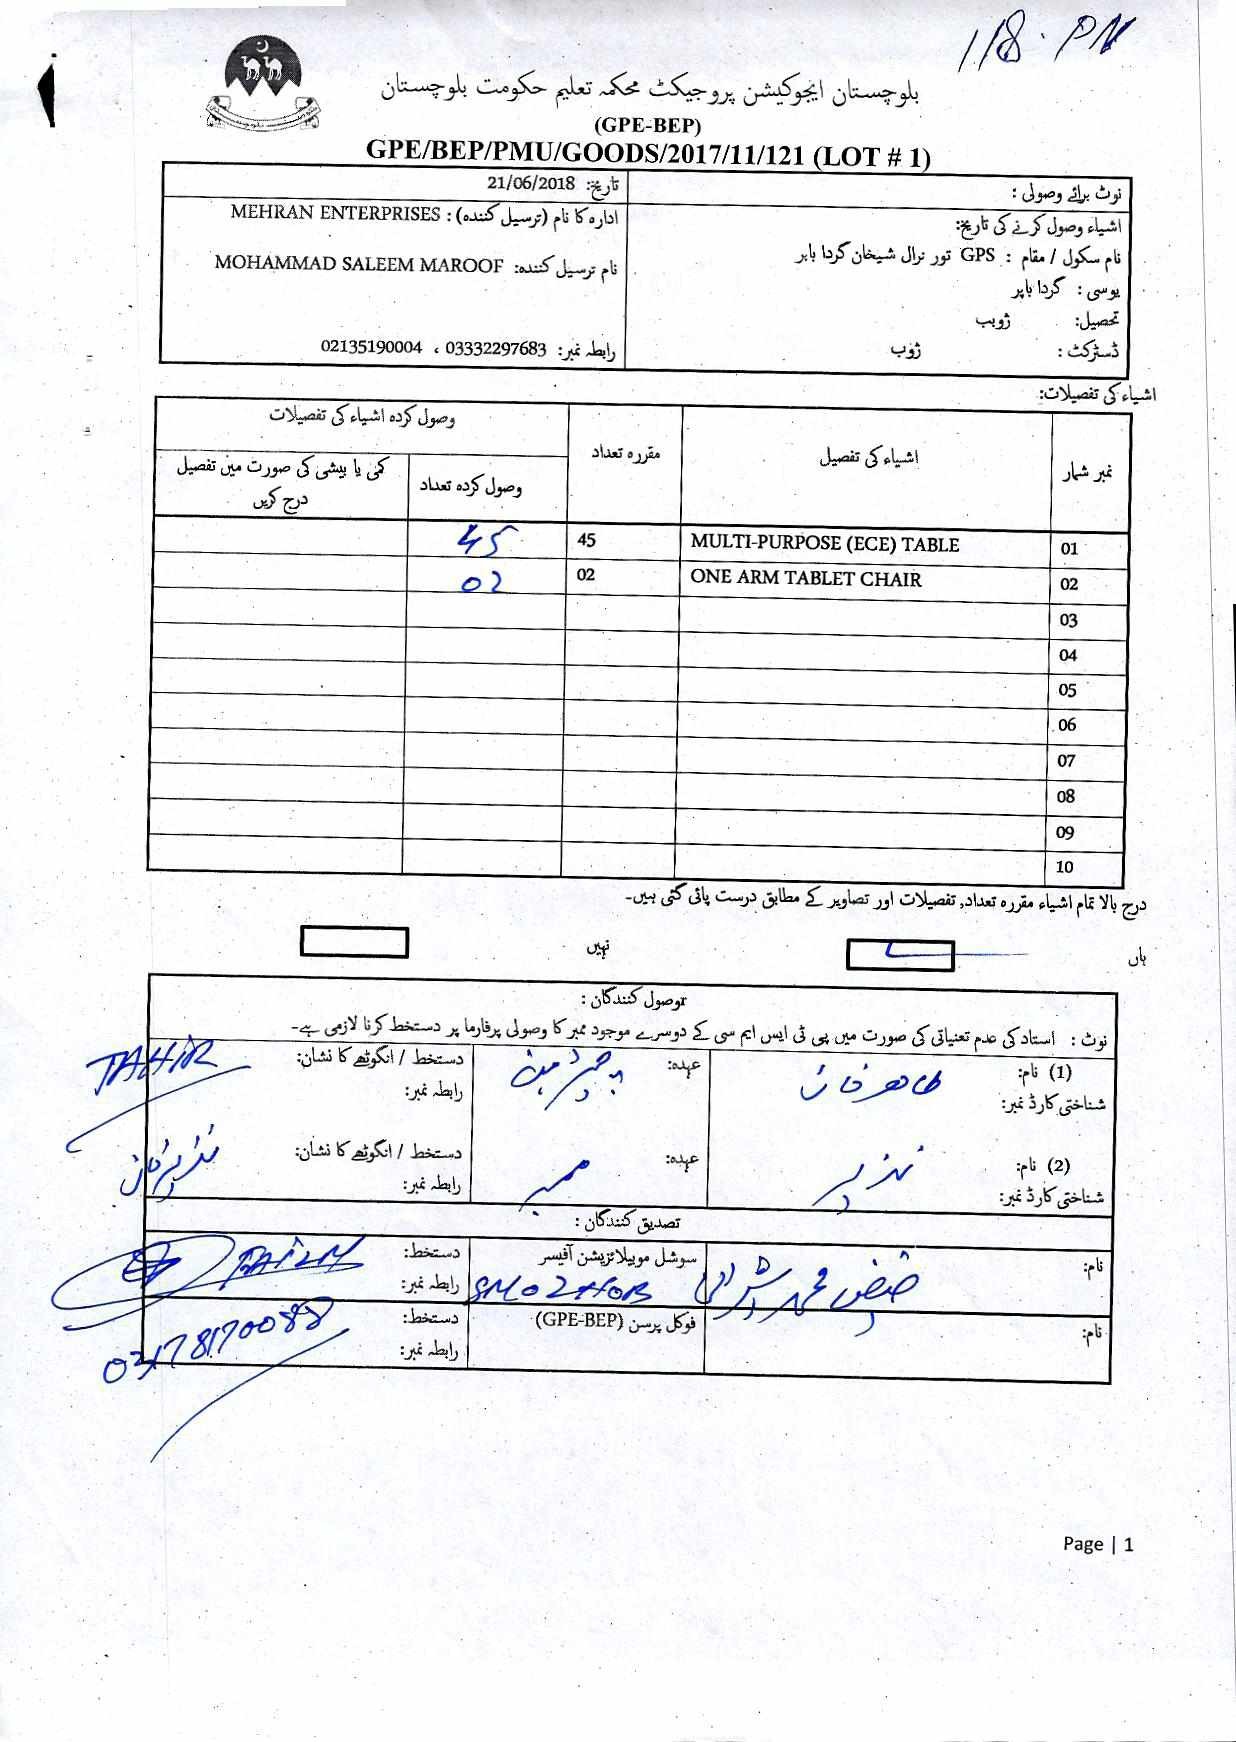 118. PN
بلوچستان ایجوکیشن پروجیکٹ محکمہ تعلیم حکومت بلوچستان
(GPE-BEP)
GPE/BEP/PMU/GOODS/2017/11/121 (LOT # 1)
نوٹ برائے وصولی :
تاریخ: 21/06/2018
اشیاء وصول کرنے کی تاریخ:
ادارہ کا نام (ترسیل کنندہ) : MEHRAN ENTERPRISES
نام سکول / مقام : GPS تور نرال شیخان گردا بابر
نام ترسیل کنندہ: MOHAMMAD SALEEM MAROOF
یوسی : گردا بابر
تحصیل: ژوب
ڈسٹرکٹ : ژوب
رابطہ نمبر: 03332297683 ، 02135190004
اشیاء کی تفصیلات:
نمبر شمار اشیاء کی تفصیل مقررہ تعداد وصول کردہ اشیاء کی تفصیلات
وصول کردہ تعداد کمی یا بیشی کی صورت میں تفصیل درج کریں
01 MULTI-PURPOSE (ECE) TABLE 45 45
02 ONE ARM TABLET CHAIR 02 02
03
04
05
06
07
08
09
10
درج بالا تمام اشیاء مقررہ تعداد, تفصیلات اور تصاویر کے مطابق درست پائی گئی ہیں۔
ہاں نہیں
توصول کنندگان :
نوٹ : استاد کی عدم تعنیاتی کی صورت میں پی ٹی ایس ایم سی کے دوسرے موجود ممبر کا وصولی پرفارما پر دستخط کرنا لازمی ہے۔
(1) نام: طاهر خان عہدہ: چیئرمین دستخط / انگوٹھے کا نشان: TAHIR
شناختی کارڈ نمبر: رابطہ نمبر:
(2) نام: نذیر عہدہ: ممبر دستخط / انگوٹھے کا نشان: نذیر خان
شناختی کارڈ نمبر: رابطہ نمبر:
تصدیق کنندگان :
نام: فیض محمد سوشل موبیلائزیشن آفیسر دستخط:
SMO ZHOB رابطہ نمبر:
نام: فوکل پرسن (GPE-BEP) دستخط:
رابطہ نمبر:
Page | 1